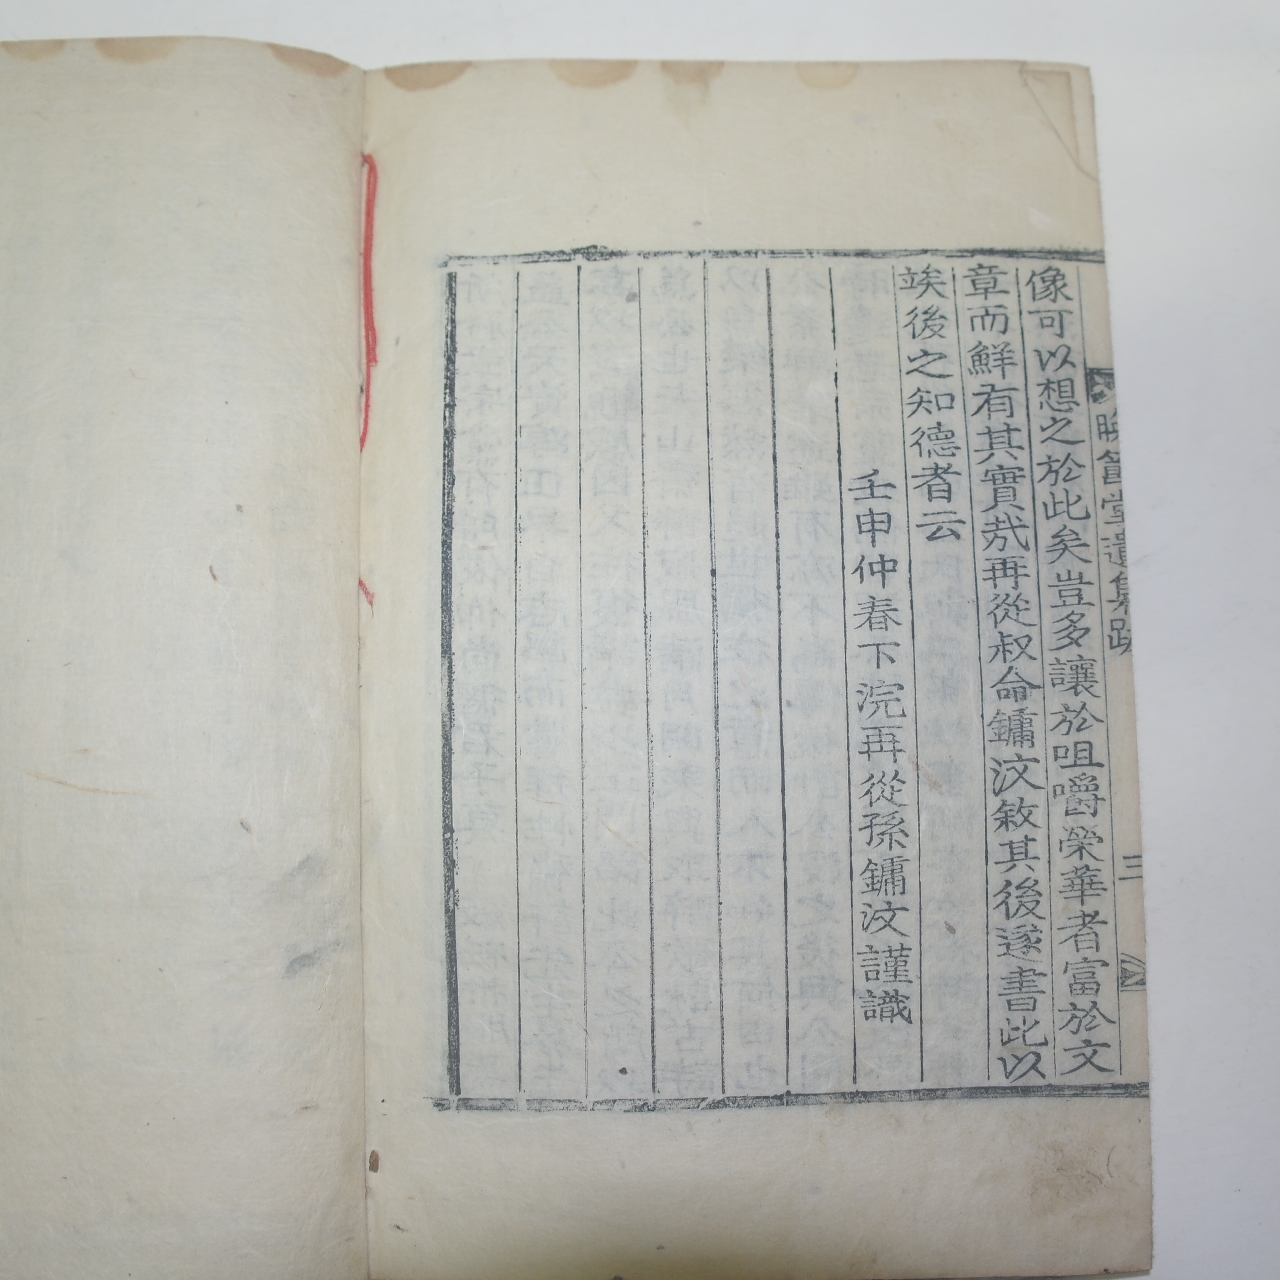 晚節堂遺集跋
三
像可以想之於此矣豈多讓於咀嚼榮華者富於文
章而鮮有其實㢤再從叔命鏞汶敘其後遂書此以
竢後之知德者云
壬申仲春下浣再從孫鏞汶謹識